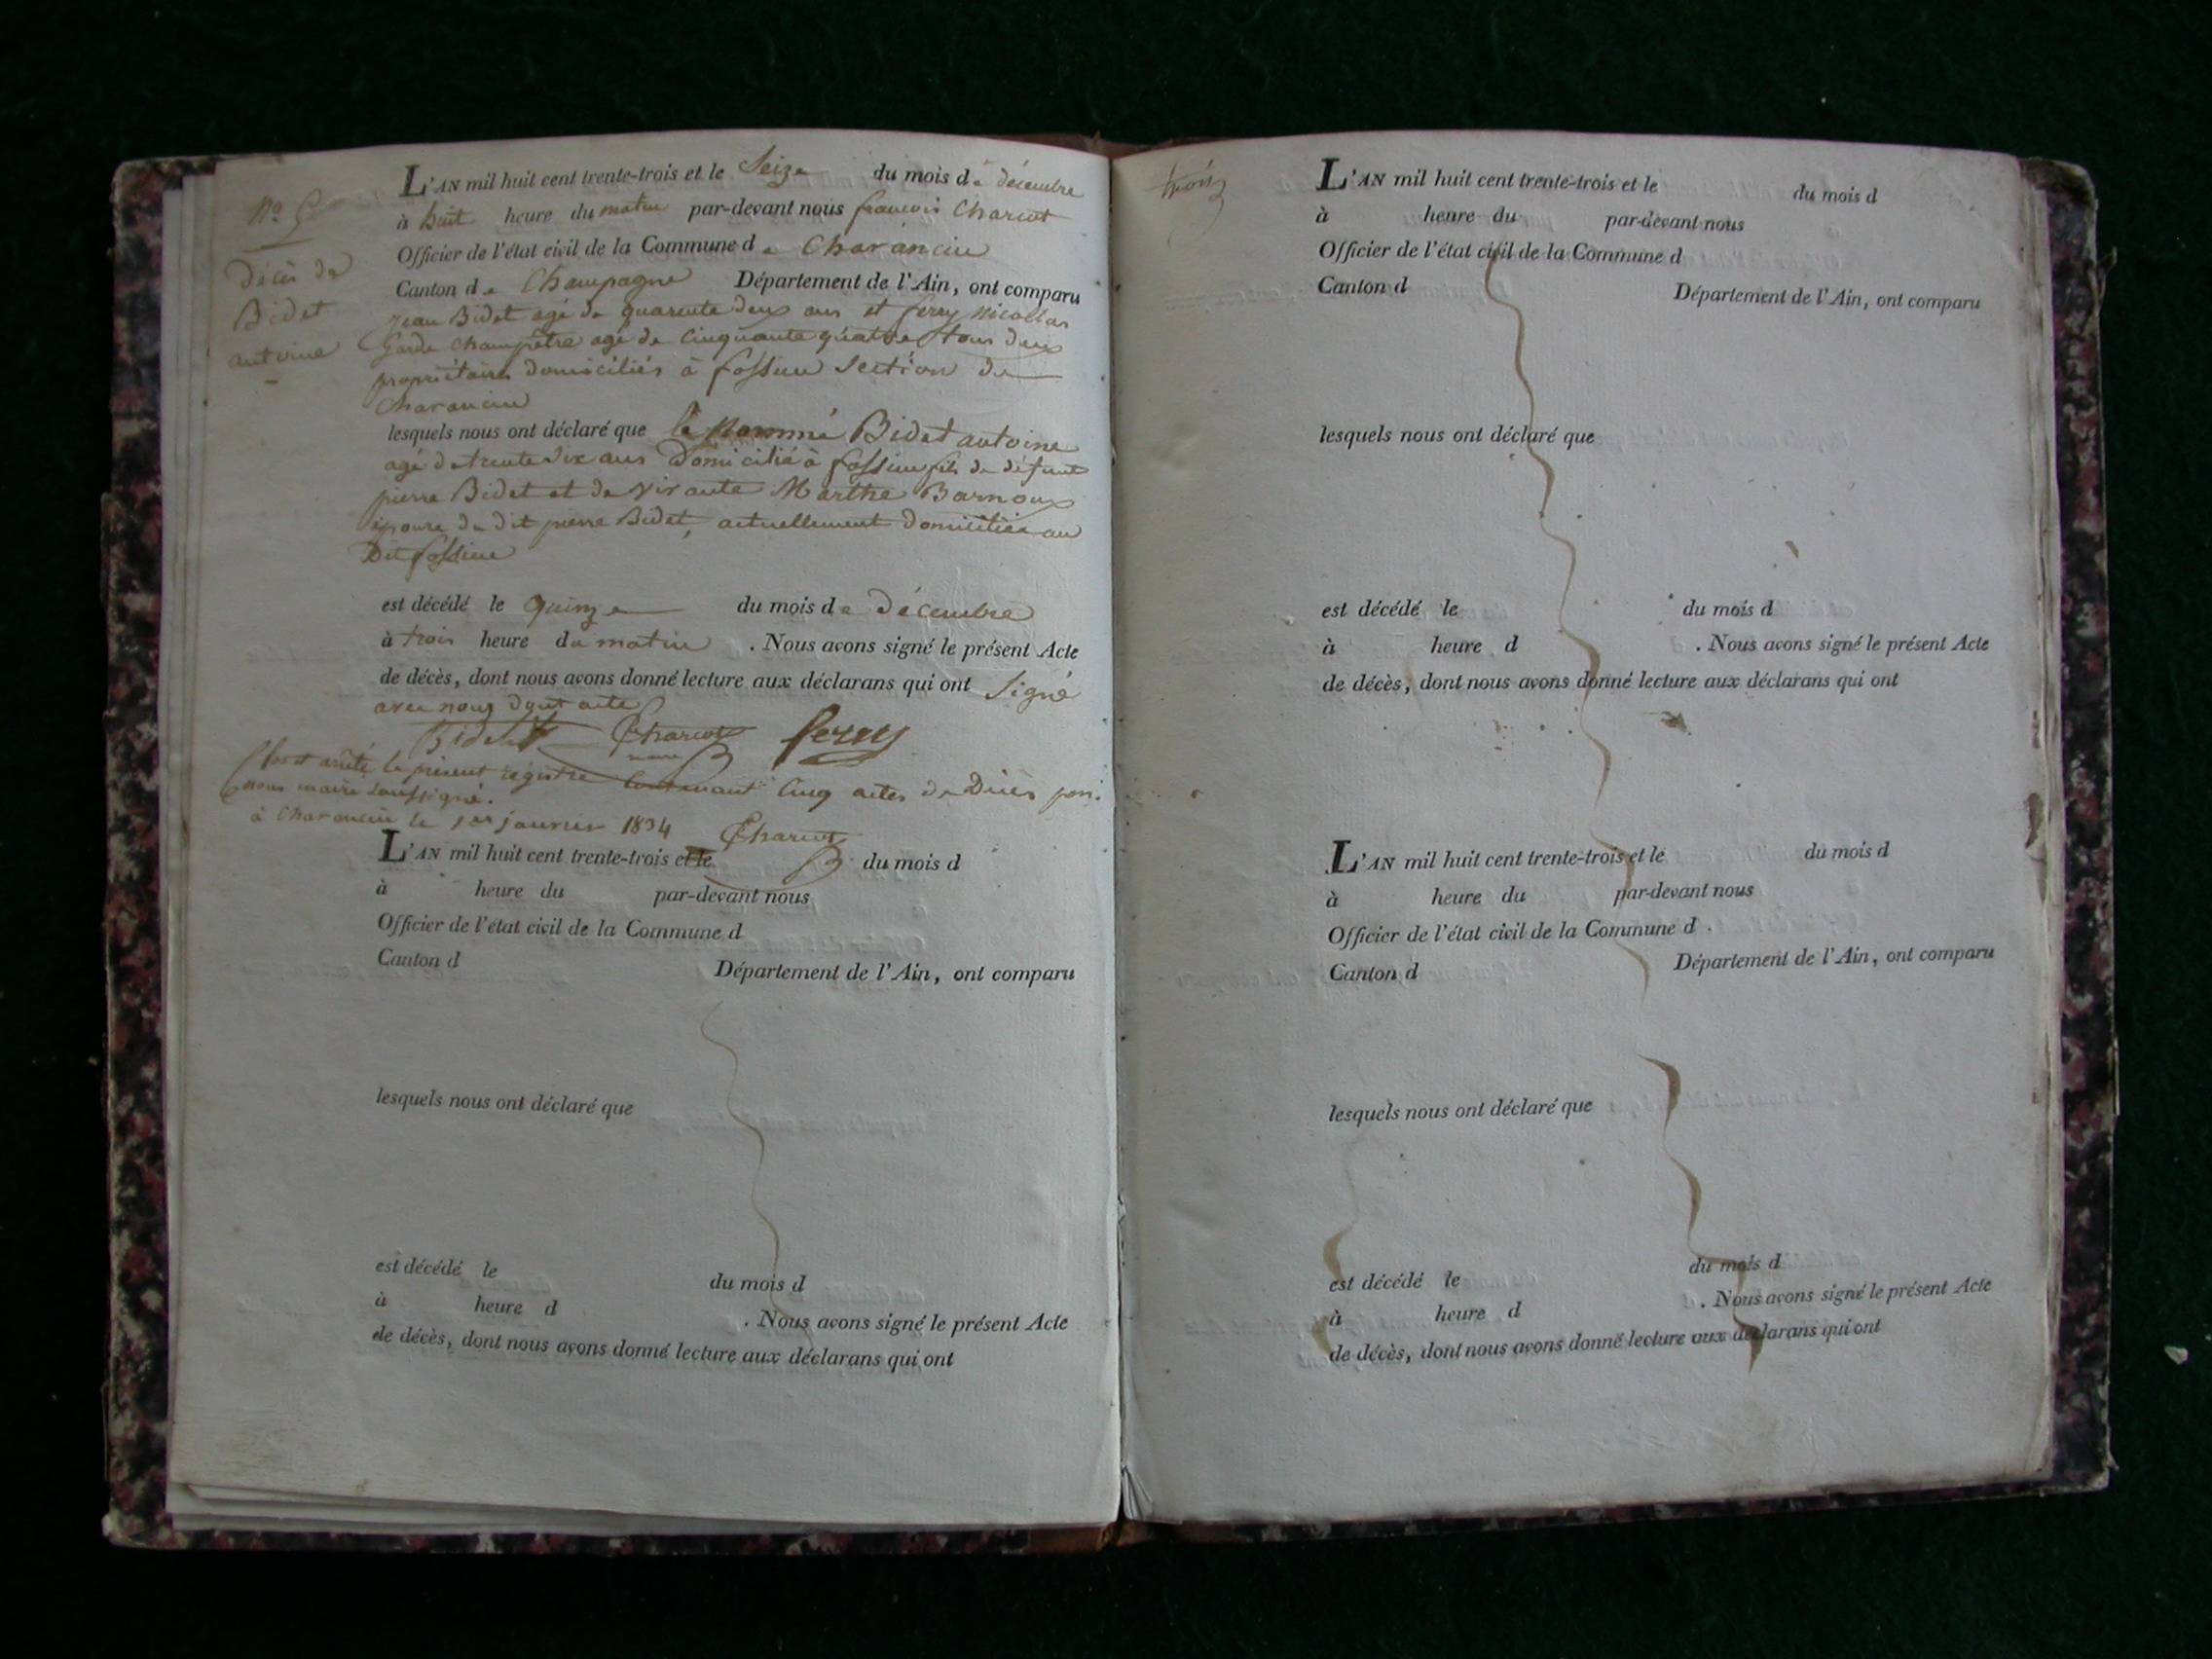 No 5
Décès de
Bidet
antoine
L'AN mil huit cent trente-trois et le Seize du mois de décembre
à huit heure du matin par-devant nous francois Chariot
Officier de l'état civil de la Commune de Charancin
Canton de Champagne Département de l'Ain, ont comparu
jean Bidet agé de quarente deux ans et ferry nicollas
Garde champêtre agé de cinquante quatre tous deux
propriétaires domiciliés à fossieu Section de
Charancin
lesquels nous ont déclaré que le nommé Bidet antoine
agé de trente six ans Domicilié à fossieu fils de défunt
pierre Bidet et de vivante Marthe Barnoux
épouse du dit pierre Bidet, actuellement domiciliée au
Dit fossieu
est décédé le quinze du mois de Décembre
à trois heure du matin . Nous avons signé le présent Acte
de décès, dont nous avons donné lecture aux déclarans qui ont Signé
avec nous dont acte
Bidet Chariot ferry
maire
Clos et arrêté le présent registre contenant Cinq actes de Décès par
nous maire soussigné.
à Charancin le 1er janvier 1834 Chariot
L'AN mil huit cent trente-trois et le du mois d
à heure du par-devant nous
Officier de l'état civil de la Commune d
Canton d Département de l'Ain, ont comparu
lesquels nous ont déclaré que
est décédé le du mois d
à heure d . Nous avons signé le présent Acte
de décès, dont nous avons donné lecture aux déclarans qui ont
trois
L'AN mil huit cent trente-trois et le du mois d
à heure du par-devant nous
Officier de l'état civil de la Commune d
Canton d Département de l'Ain, ont comparu
lesquels nous ont déclaré que
est décédé le du mois d
à heure d . Nous avons signé le présent Acte
de décès, dont nous avons donné lecture aux déclarans qui ont
L'AN mil huit cent trente-trois et le du mois d
à heure du par-devant nous
Officier de l'état civil de la Commune d
Canton d Département de l'Ain, ont comparu
lesquels nous ont déclaré que
est décédé le du mois d
à heure d . Nous avons signé le présent Acte
de décès, dont nous avons donné lecture aux déclarans qui ont